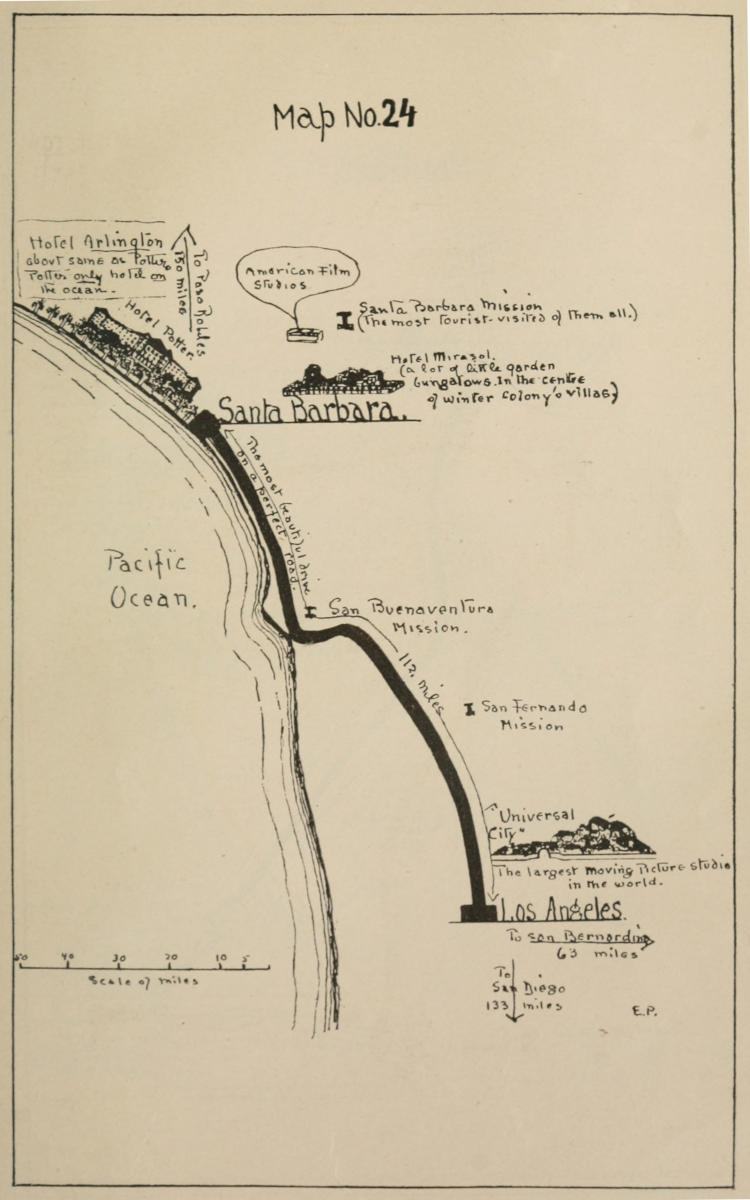 Map No.24
Hotel Arlington
about same as Potter,
Potter only hotel on
the ocean.
To Paso Robles
150 miles
Hotel Potter.
American Film
Studios
Santa Barbara Mission
(The most Tourist-visited of them all.)
Hotel Mirasol.
(a lot of little garden
bungalows. In the centre
of winter colony's villas)
Santa Barbara.
The most beautiful drive
on a perfect road.
Pacific
Ocean.
San Buenaventura
Mission.
112 miles
San Fernando
Mission
"Universal
City"
The largest moving Picture studio
in the world.
Los Angeles.
To San Bernardino
63 miles
50 40 30 20 10 5
Scale of miles
To
San Diego
133 miles
E.P.